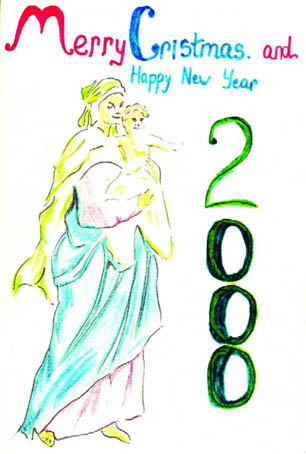 Merry Cristmas. and
Happy New Year
2000